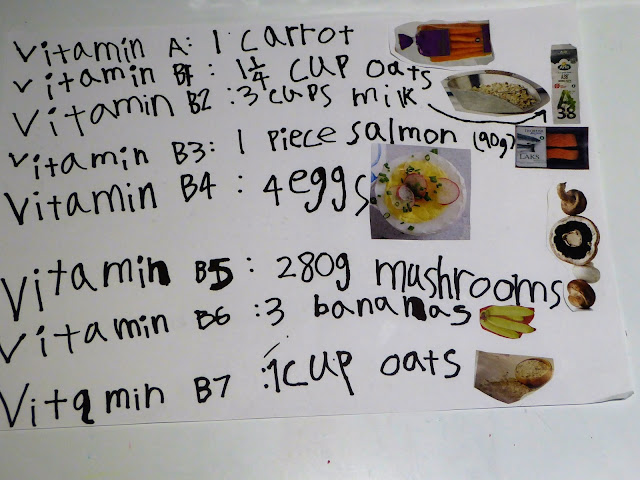 Vitamin A: 1 carrot
Vitamin B1: 1 1/4 cup oats
Vitamin B2: 3 cups milk
Vitamin B3: 1 piece salmon (90g)
Vitamin B4: 4 eggs
Vitamin B5: 280g mushrooms
Vitamin B6: 3 bananas
Vitamin B7: 1 cup oats
38
LAKS